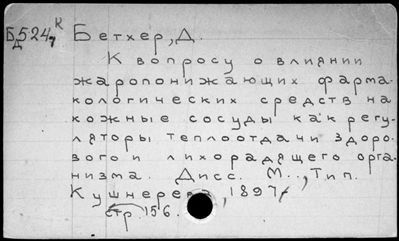 БД524, К Бетхер, Д.
К вопросу о влиянии
жаропонижающих фарма-
кологических средств на
кожные сосуды как регу-
ляторы теплоотдачи здоро-
вого и лихорадящего орга-
низма. Дисс. М., Тип.
1897
стр. 156.